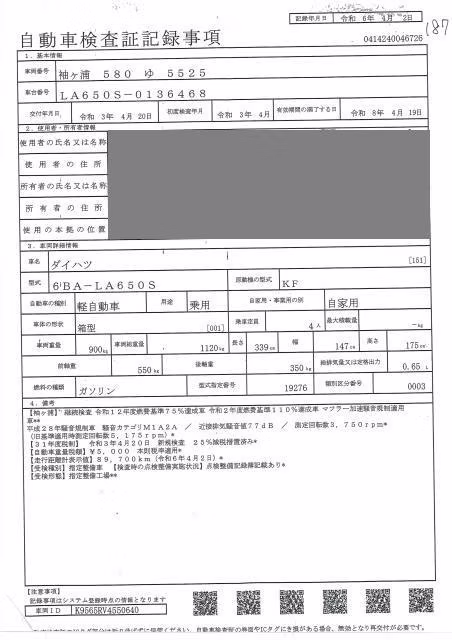 記録年月日 令和 6年 4月 2日
187
自動車検査証記録事項
0414240046726
1．基本情報
車両番号 袖ヶ浦 580 ゆ 5525
車台番号 LA650S－0136468
交付年月日 令和 3年 4月 20日 初度検査年月 令和 3年 4月 有効期間の満了する日 令和 8年 4月 19日
2．使用者・所有者情報
使用者の氏名又は名称
使用者の住所
所有者の氏名又は名称
所有者の住所
使用の本拠の位置
3．車両詳細情報
車名 ダイハツ [151]
型式 6BA－LA650S 原動機の型式 KF
自動車の種別 軽自動車 用途 乗用 自家用・事業用の別 自家用
車体の形状 箱型 [001] 乗車定員 4人 最大積載量 －kg
車両重量 900kg 車両総重量 1120kg 長さ 339cm 幅 147cm 高さ 175cm
前軸重 550kg 後軸重 350kg 総排気量又は定格出力 0.65 L
燃料の種類 ガソリン 型式指定番号 19276 類別区分番号 0003
4．備考
【袖ヶ浦】継続検査 令和12年度燃費基準75％達成車 令和2年度燃費基準110％達成車 マフラー加速騒音規制適用
車**
平成28年騒音規制車 騒音カテゴリM1A2A ／ 近接排気騒音値77dB ／ 測定回転数3，750rpm*
(旧基準適用時測定回転数5，175rpm)*
【31年度税制】 令和3年4月20日 新規検査 25％減税措置済み*
【自動車重量税額】¥5，000 本則税率適用*
【走行距離計表示値】89，700km (令和6年4月2日)*
【受検種別】指定整備車 【検査時の点検整備実施状況】点検整備記録簿記載あり*
【受検形態】指定整備工場**
【注意事項】
記録事項はシステム登録時点の情報となります
車両ID K9565RV4550640